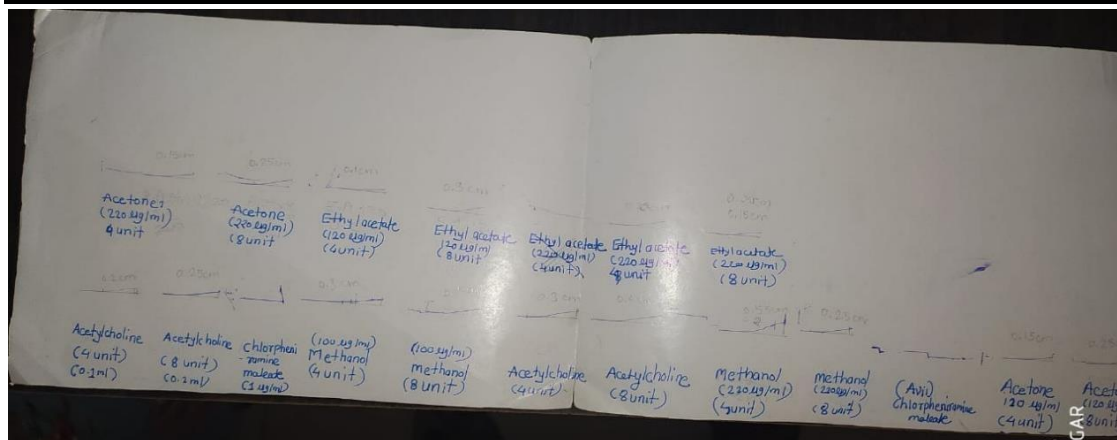 0.15cm
0.25cm
Acetone
(220 µg/ml)
4 unit
Acetone
(220 µg/ml)
(8 unit)
Ethyl acetate
(120 µg/ml)
(4 unit)
Ethyl acetate
120 µg/ml
(8 unit)
Ethyl acetate
(220 µg/ml)
(4 unit)
Ethyl acetate
(220 µg/ml)
unit
Ethyl acetate
(220 µg/ml)
(8 unit)
0.15cm
0.25cm
0.3cm
0.25cm
Acetylcholine
(4 unit)
(0.1ml)
Acetylcholine
(8 unit)
(0.1ml)
Chlorpheni
ramine
maleate
(1 µg/ml)
(100 µg/ml)
Methanol
(4 unit)
(100 µg/ml)
methanol
(8 unit)
Acetylcholine
(4 unit)
Acetylcholine
(8 unit)
Methanol
(220 µg/ml)
(4 unit)
methanol
(220 µg/ml)
(8 unit)
(Avil)
Chlorpheniramine
maleate
0.15cm
Acetone
120 µg/ml
(4 unit)
0.25
Aceto
(120 µg
8 uni
GAR